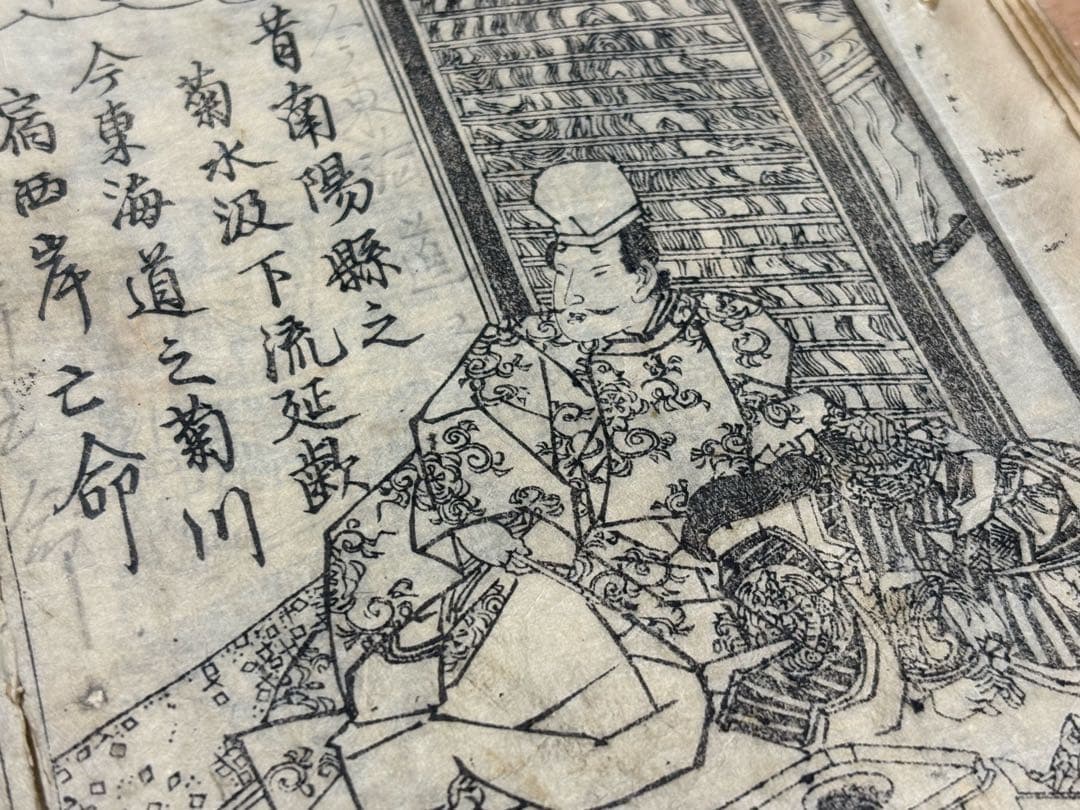 昔南陽縣之
菊水汲下流延齡
今東海道之菊川
宿西岸亡命